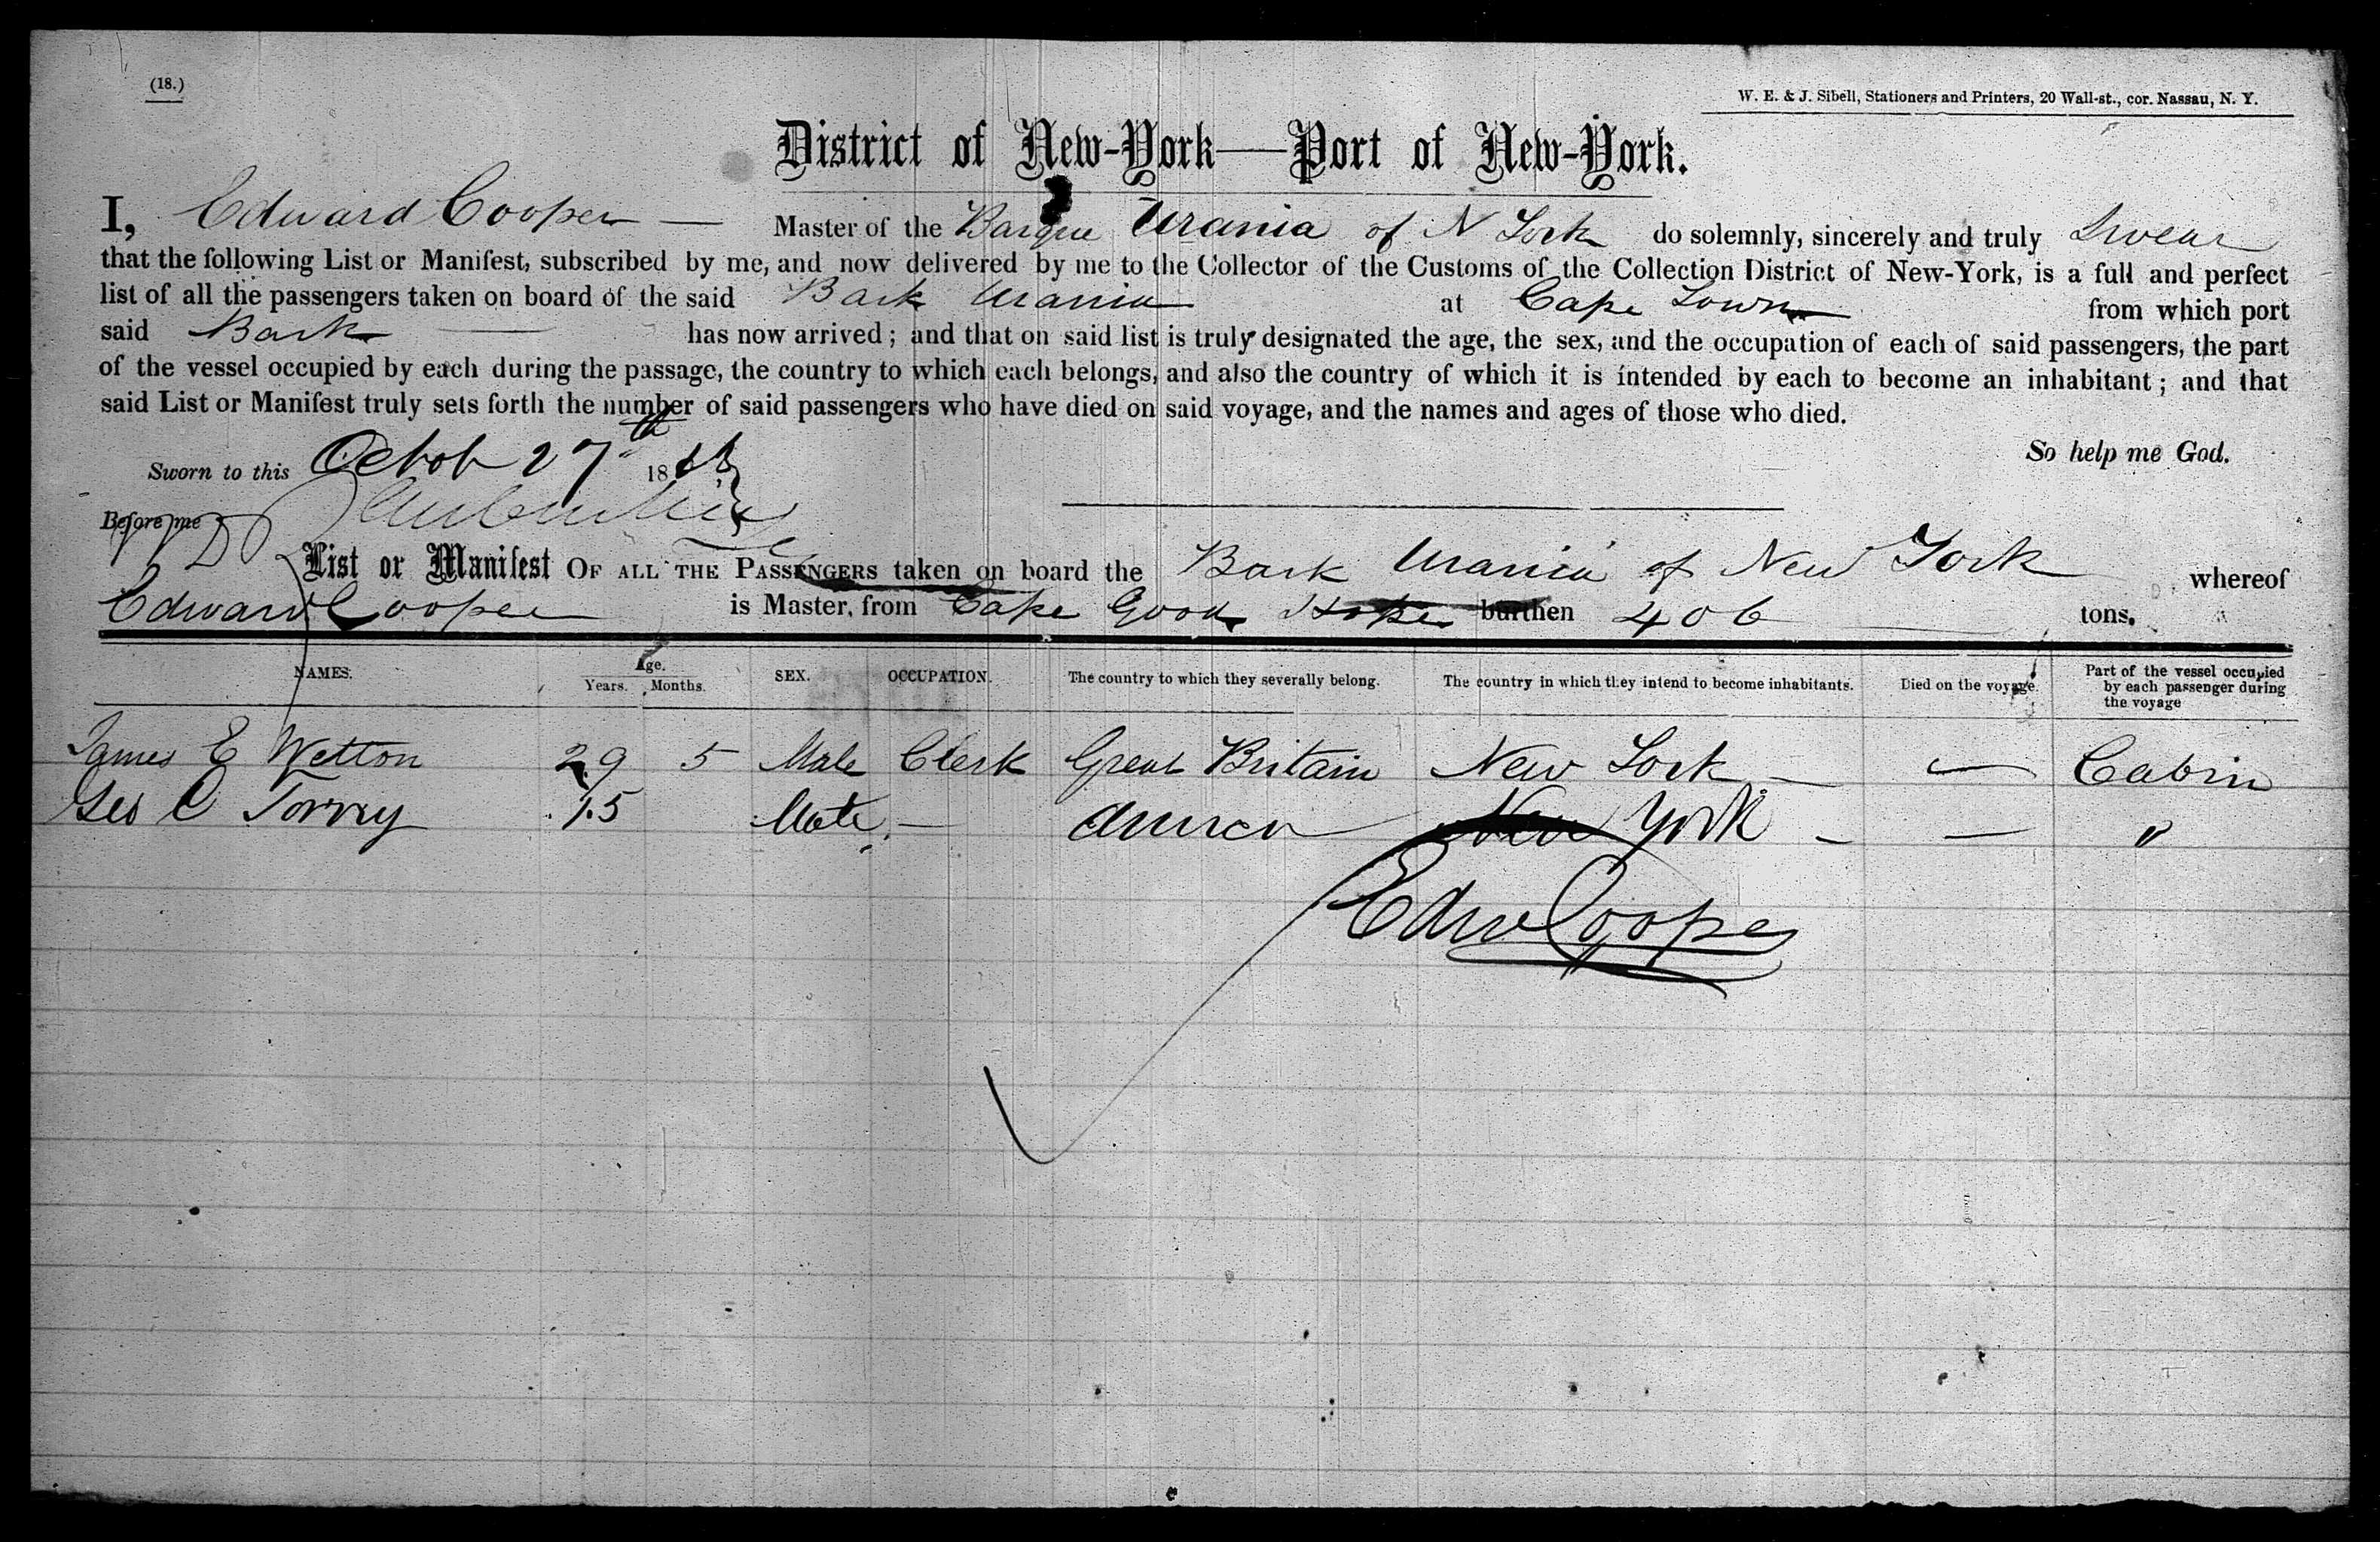 (18.)
W. E. & J. Sibell, Stationers and Printers, 20 Wall-st., cor. Nassau, N. Y.
District of New-York—Port of New-York.
I, Edward Cooper — Master of the Barque Urania of N York do solemnly, sincerely and truly Swear
that the following List or Manifest, subscribed by me, and now delivered by me to the Collector of the Customs of the Collection District of New-York, is a full and perfect
list of all the passengers taken on board of the said Bark Urania at Cape Town from which port
said Bark — has now arrived; and that on said list is truly designated the age, the sex, and the occupation of each of said passengers, the part
of the vessel occupied by each during the passage, the country to which each belongs, and also the country of which it is intended by each to become an inhabitant; and that
said List or Manifest truly sets forth the number of said passengers who have died on said voyage, and the names and ages of those who died.
So help me God.
Sworn to this Octob 27th 18
Before me
List or Manifest OF ALL THE PASSENGERS taken on board the Bark Urania of New York whereof
Edward Cooper is Master, from Cape Good Hope burthen 406 tons.
NAMES. Age. Years. Months. SEX. OCCUPATION. The country to which they severally belong. The country in which they intend to become inhabitants. Died on the voyage. Part of the vessel occupied by each passenger during the voyage
James E Wetton 29 5 Male Clerk Great Britain New York — — Cabin
Geo C Torrey 15 Male — America New York — — "
Edw Cooper